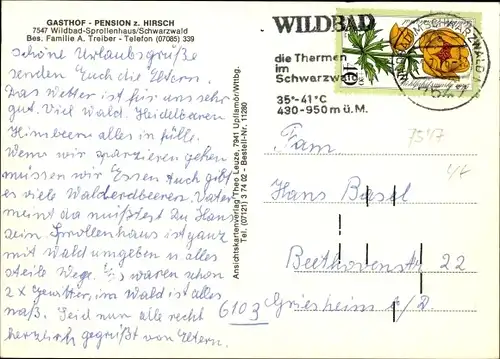 GASTHOF - PENSION z. HIRSCH
7547 Wildbad-Sprollenhaus/Schwarzwald
Bes. Familie A. Treiber - Telefon (07085) 339
schöne Urlaubsgrüße
senden Euch die Eltern.
Das Wetter ist für uns sehr
gut. Viel Wald. Heidelbeeren
Himbeeren alles in fülle.
Wenn wir spazieren gehen
müssen wir Essen auch gibt
es viele Walderdbeeren. Vater
mend da müßtest Du Hans
sein Sprollenhaus ist ganz
mit Wald umgeben u alles
steile Wege. waren schon
2x Gewitter, im Wald ist alles
naß. Seid nun alle recht
herzlich gegrüßt von Eltern.
Ansichtskartenverlag Theo Leuze, 7941 Upflamör/Wttbg.
Tel. (07121) 3 74 02 - Bestell-Nr. 11280
WILDBAD
die Thermen
im
Schwarzwald
35°-41°C
430-950 m ü. M.
WILDBAD IM SCHWARZWALD
7547
Fam
Hans Basel
Beethovenstr 22
6103 Griesheim b/D.